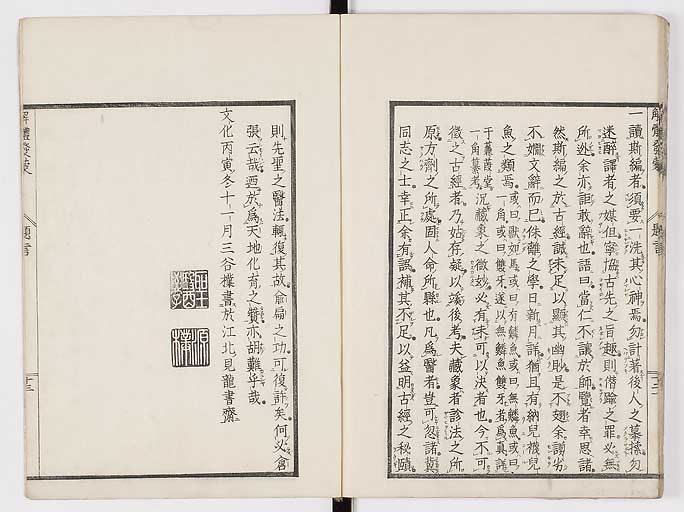 一讀斯編者須要一洗其心神焉勿計著後人之摹擦勿
迷醉譯者之媒但寧協古先之旨趣則僭踰之罪必無
所迯余亦詎敢辭也語曰當仁不讓於師覽者幸思諸
然斯編之於古經誠未足以顯其幽眇是不翅余謭劣
不嫺文辭而已侏離之學日新月詳猶且有納兒襪兒
魚之類焉或曰獸如馬或曰有鱗魚或曰無鱗魚或曰
一角或曰雙牙遂以無鱗魚雙牙者為真詳
于蒹葭堂
一角纂考
沉藏象之微妙必有未可以決者也今不可
徵之古經者乃姑存疑以竢後考夫藏象者診法之所
原方劑之所處固人命所縣也凡爲醫者豈可忽諸冀
同志之士幸正余有誤補其不足以益明古經之秘賾
則先聖之醫法輒復其故俞扁之功可復許矣何必倉
張云哉迺於爲天地化育之贊亦胡難乎哉
文化丙寅冬十一月三谷樸書於江北見龍書齋
解體發蒙
題言
十三